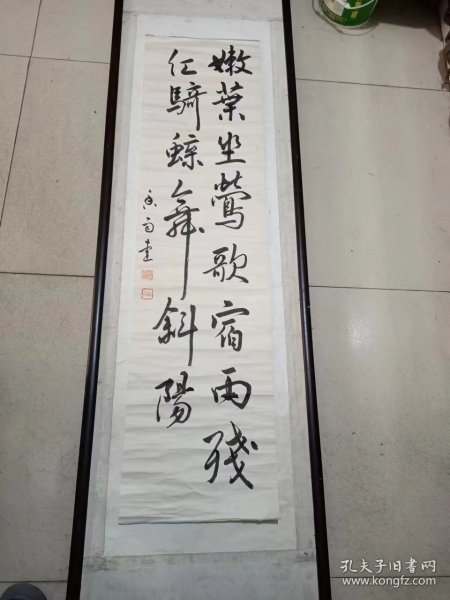 嫩葉坐鶯歌宿雨殘
仁騎鯨舞斜陽
孔夫子旧书网
www.kongfz.com